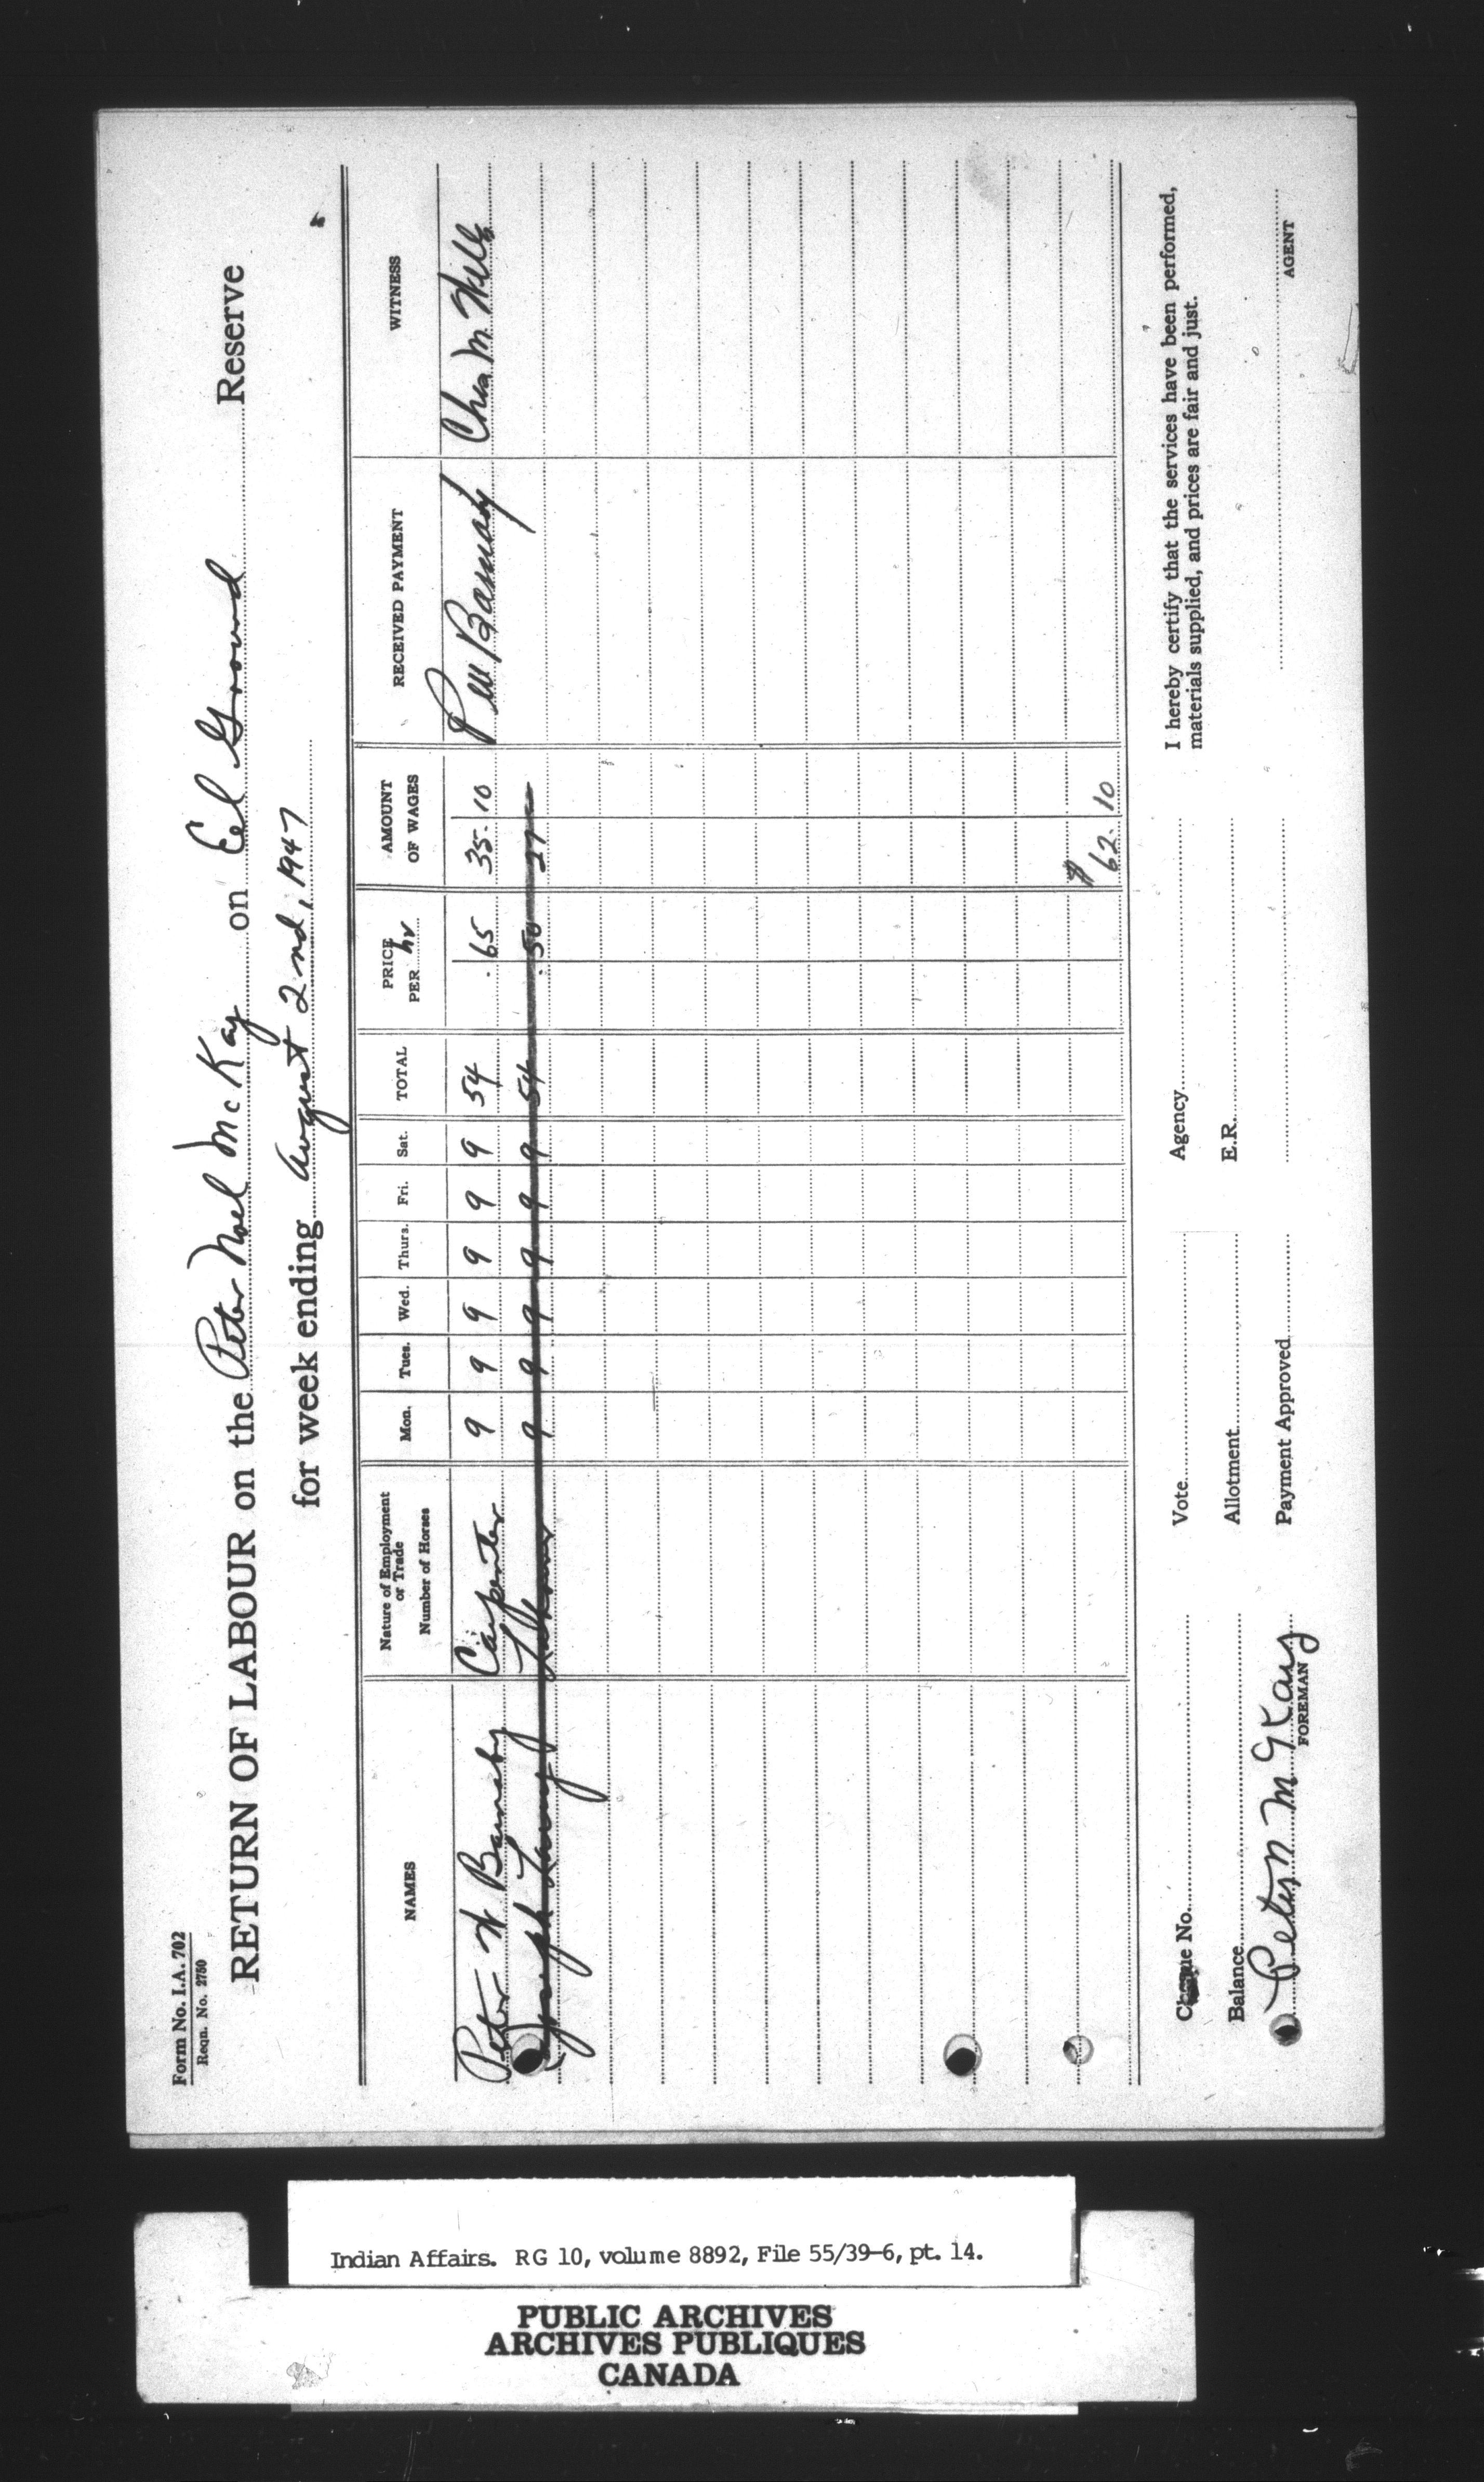 Form No. I.A. 702
Reqn. No. 2750
RETURN OF LABOUR on the Peter Noel McKay on Eel Ground Reserve
for week ending August 2nd, 1947
NAMES Nature of Employment or Trade Number of Horses Mon. Tues. Wed. Thurs. Fri. Sat. TOTAL PRICE PER hr AMOUNT OF WAGES RECEIVED PAYMENT WITNESS
Peter W Barnaby Carpenter 9 9 9 9 9 9 54 .65 35.10 P W Barnaby Chas M. Wells
Joseph Labourer 9 9 9 9 9 9 54 .50 27
$ 62.10
Cheque No. Vote Agency I hereby certify that the services have been performed,
materials supplied, and prices are fair and just.
Balance Allotment E.R.
Peter N McKay Payment Approved
FOREMAN AGENT
Indian Affairs. RG 10, volume 8892, File 55/39-6, pt. 14.
PUBLIC ARCHIVES
ARCHIVES PUBLIQUES
CANADA